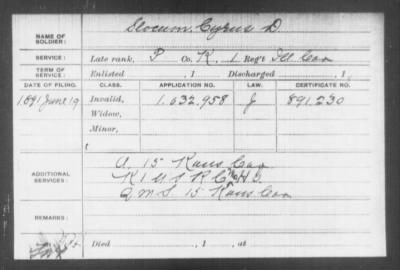 NAME OF SOLDIER: Slocum, Cyrus D.
SERVICE: Late rank, P Co. K, 1 Reg't Ill Cav
TERM OF SERVICE: Enlisted , 1 Discharged , 1
DATE OF FILING. CLASS. APPLICATION NO. LAW. CERTIFICATE NO.
1891 June 19 Invalid, 1.032.958 J 891.230
Widow,
Minor,
ADDITIONAL SERVICES:
A. 15 Kans Cav
K 1 U S R
Q M S 15 Kans Cav
REMARKS:
Died , 1 , at